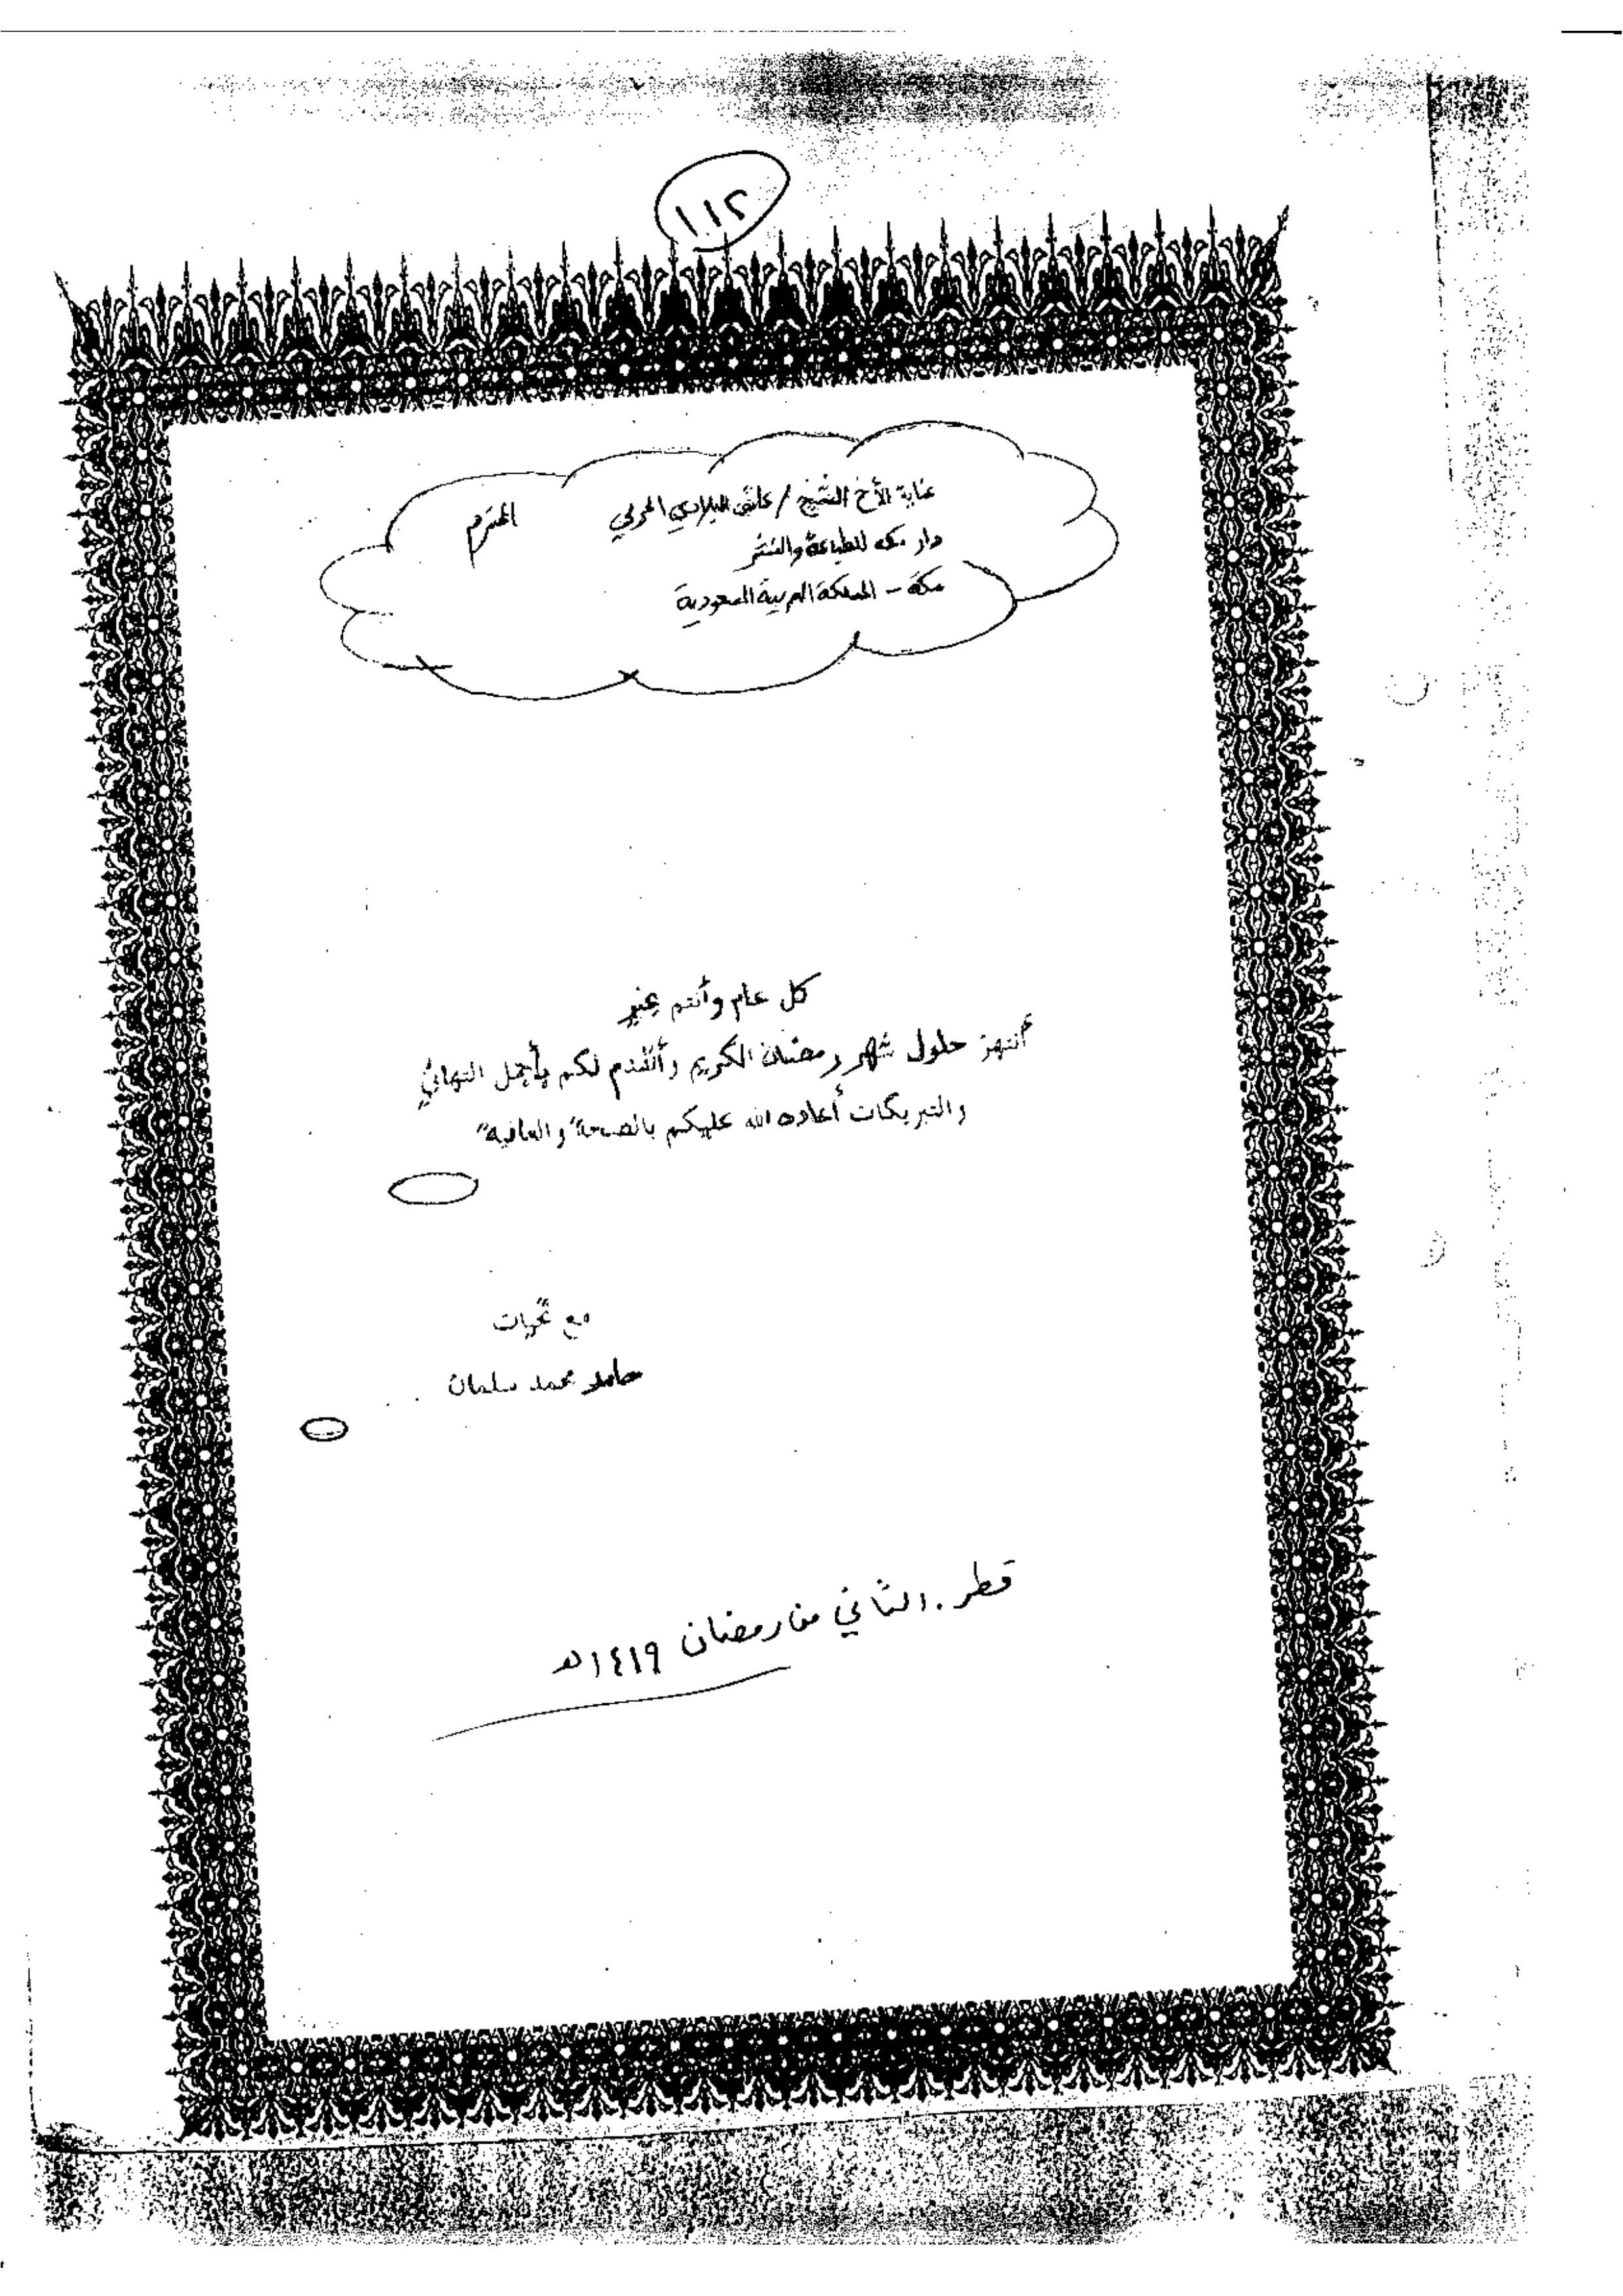 ١١٢
عناية الأخ الشيخ / عاتق البلادي الحربي المحترم
دار مكه للطباعة والنشر
مكة - المملكة العربية السعودية
كل عام وأنتم بخير
أنتهز حلول شهر رمضان الكريم وأتقدم لكم بأجمل التهاني
والتبريكات أعاده الله عليكم بالصحة والعافية
مع تحيات
حامد محمد سلمان
قطر. الثاني من رمضان ١٤١٩هـ